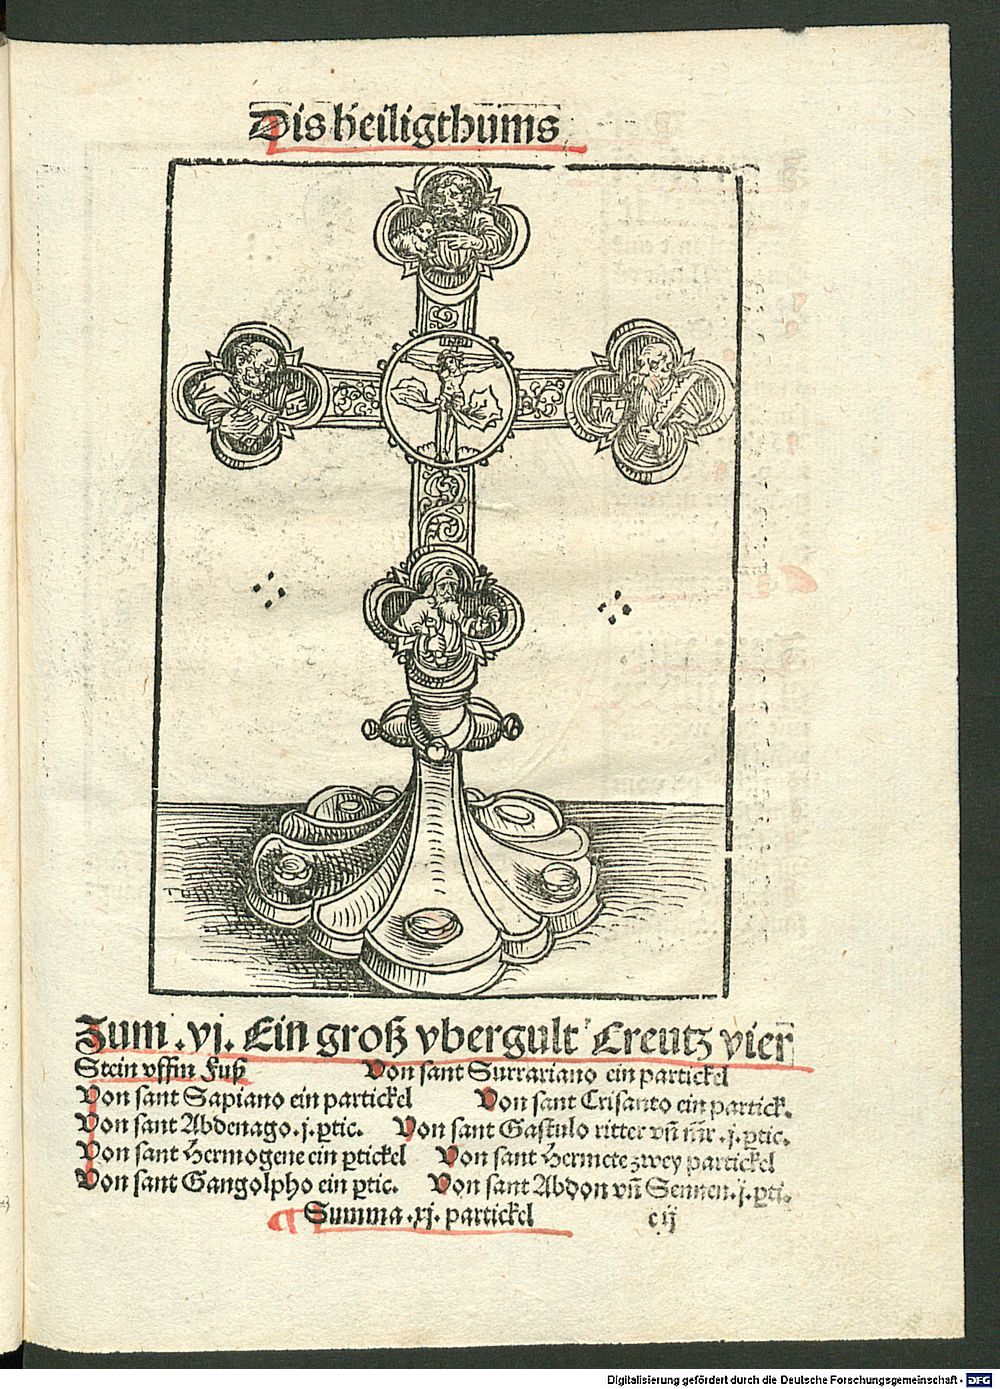 Dis heiligthūms
Zum .vj. Ein groß vbergult Creutz vier
Stein vffm Fuß Von sant Surrariano ein partickel
Von sant Sapiano ein partickel Von sant Crisanto ein partick.
Von sant Abdenago .j. ꝑtic. Von sant Gastulo ritter vñ m̄r .j. ꝑtic.
Von sant Hermogene ein ꝑtickel Von sant Hermete zwey partickel
Von sant Gangolpho ein ꝑtic. Von sant Abdon vñ Sennen .j. ꝑti.
¶ Summa .xj. partickel cij
Digitalisierung gefördert durch die Deutsche Forschungsgemeinschaft - DFG